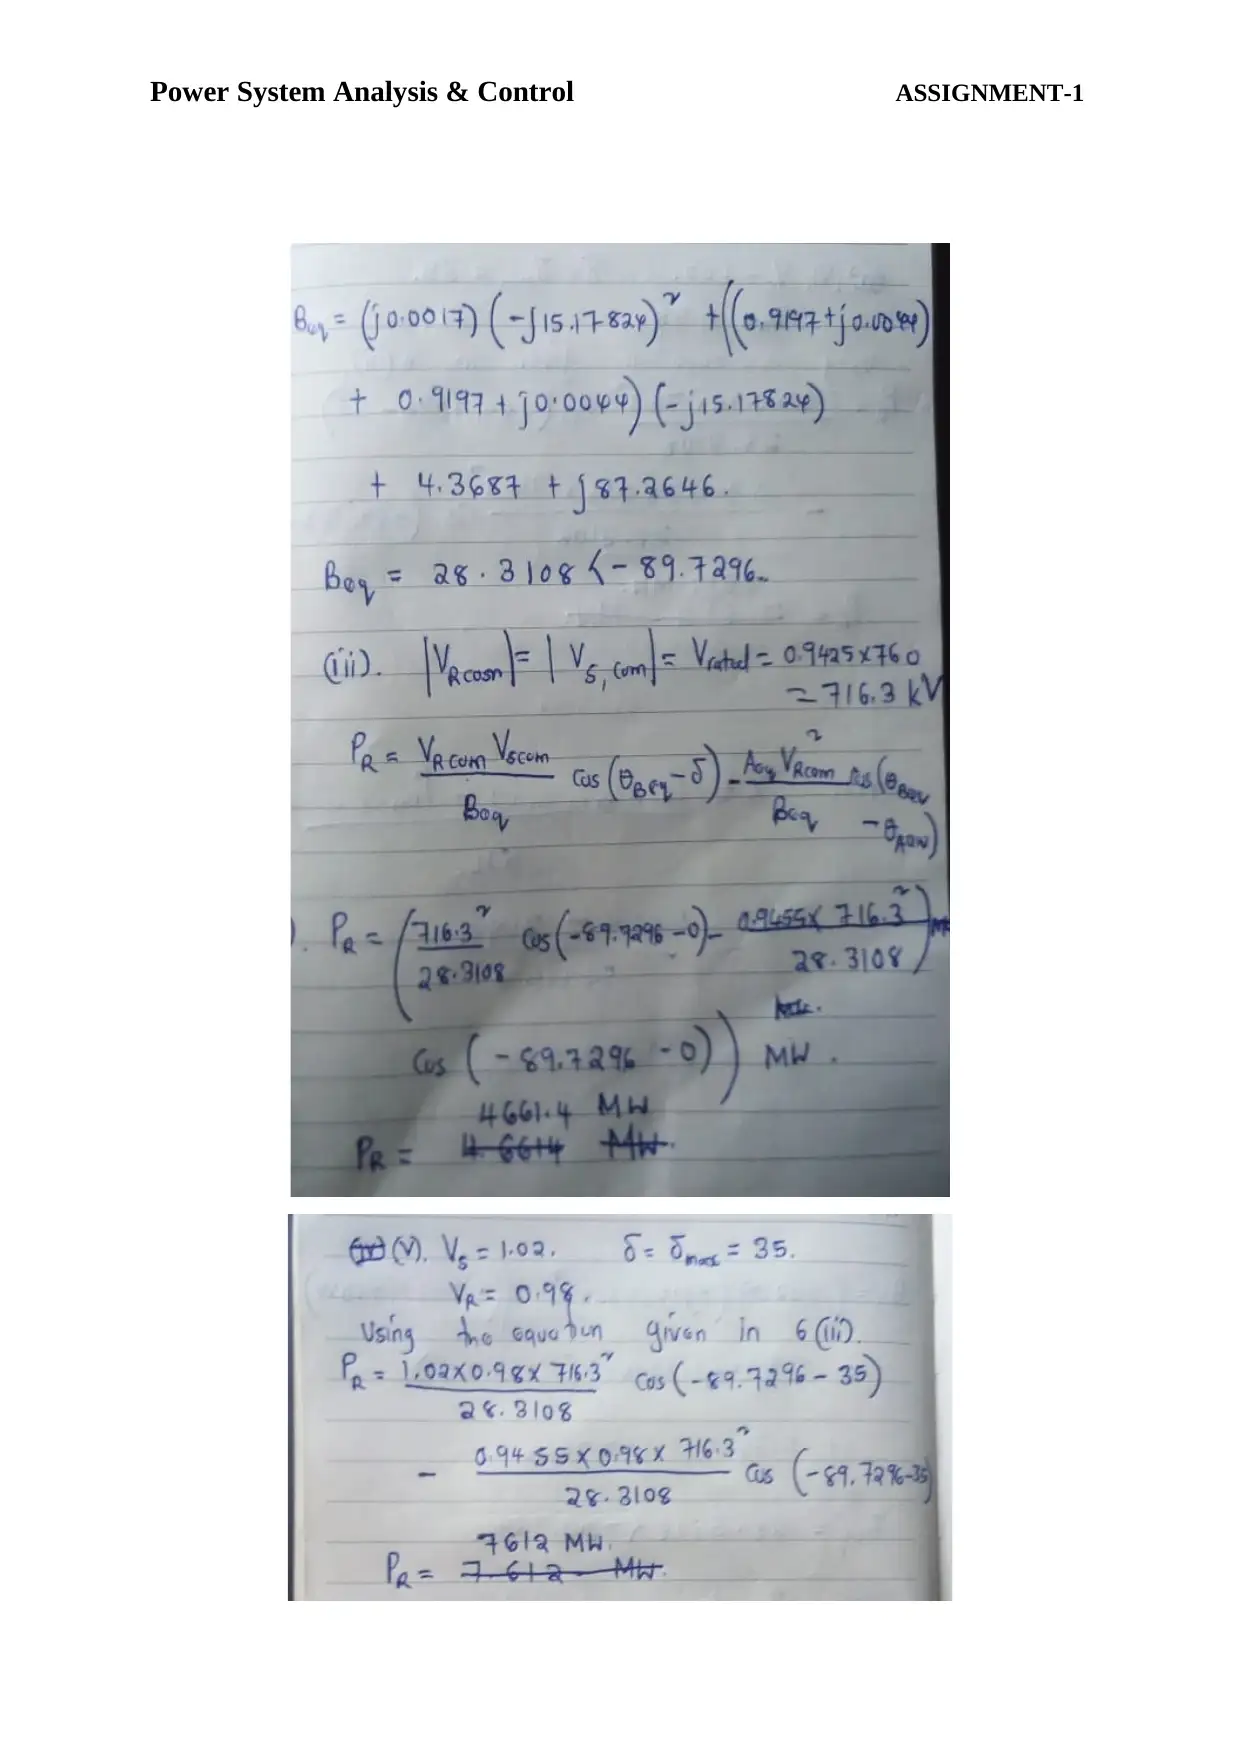 Power System Analysis & Control ASSIGNMENT-1
Beq = (j0.0017) (-j15.17824)² + ((0.9197+j0.0044)
+ 0.9197 + j0.0044) (-j15.17824)
+ 4.3687 + j87.2646.
Beq = 28.3108 <-89.7296
(iii). |VRcom| = |Vs,com| = Vrated = 0.9425x760
= 716.3 kV
PR = VRcom Vscom / Beq Cos (θBeq - δ) - Aeq VRcom² / Beq Cos (θBeq
- θAeq)
PR = (716.3² / 28.3108 Cos (-89.7296 -0) - 0.9455x 716.3² / 28.3108
Cos (-89.7296 -0)) MW.
4661.4 MW
PR = 4.6614 MW.
(iv) (V). Vs = 1.02. δ = δmax = 35.
VR = 0.98.
Using the equation given in 6(iii).
PR = 1.02x0.98x 716.3² / 28.3108 Cos (-89.7296 - 35)
- 0.9455x0.98x 716.3² / 28.3108 Cos (-89.7296-35)
7612 MW.
PR = 7.612 MW.